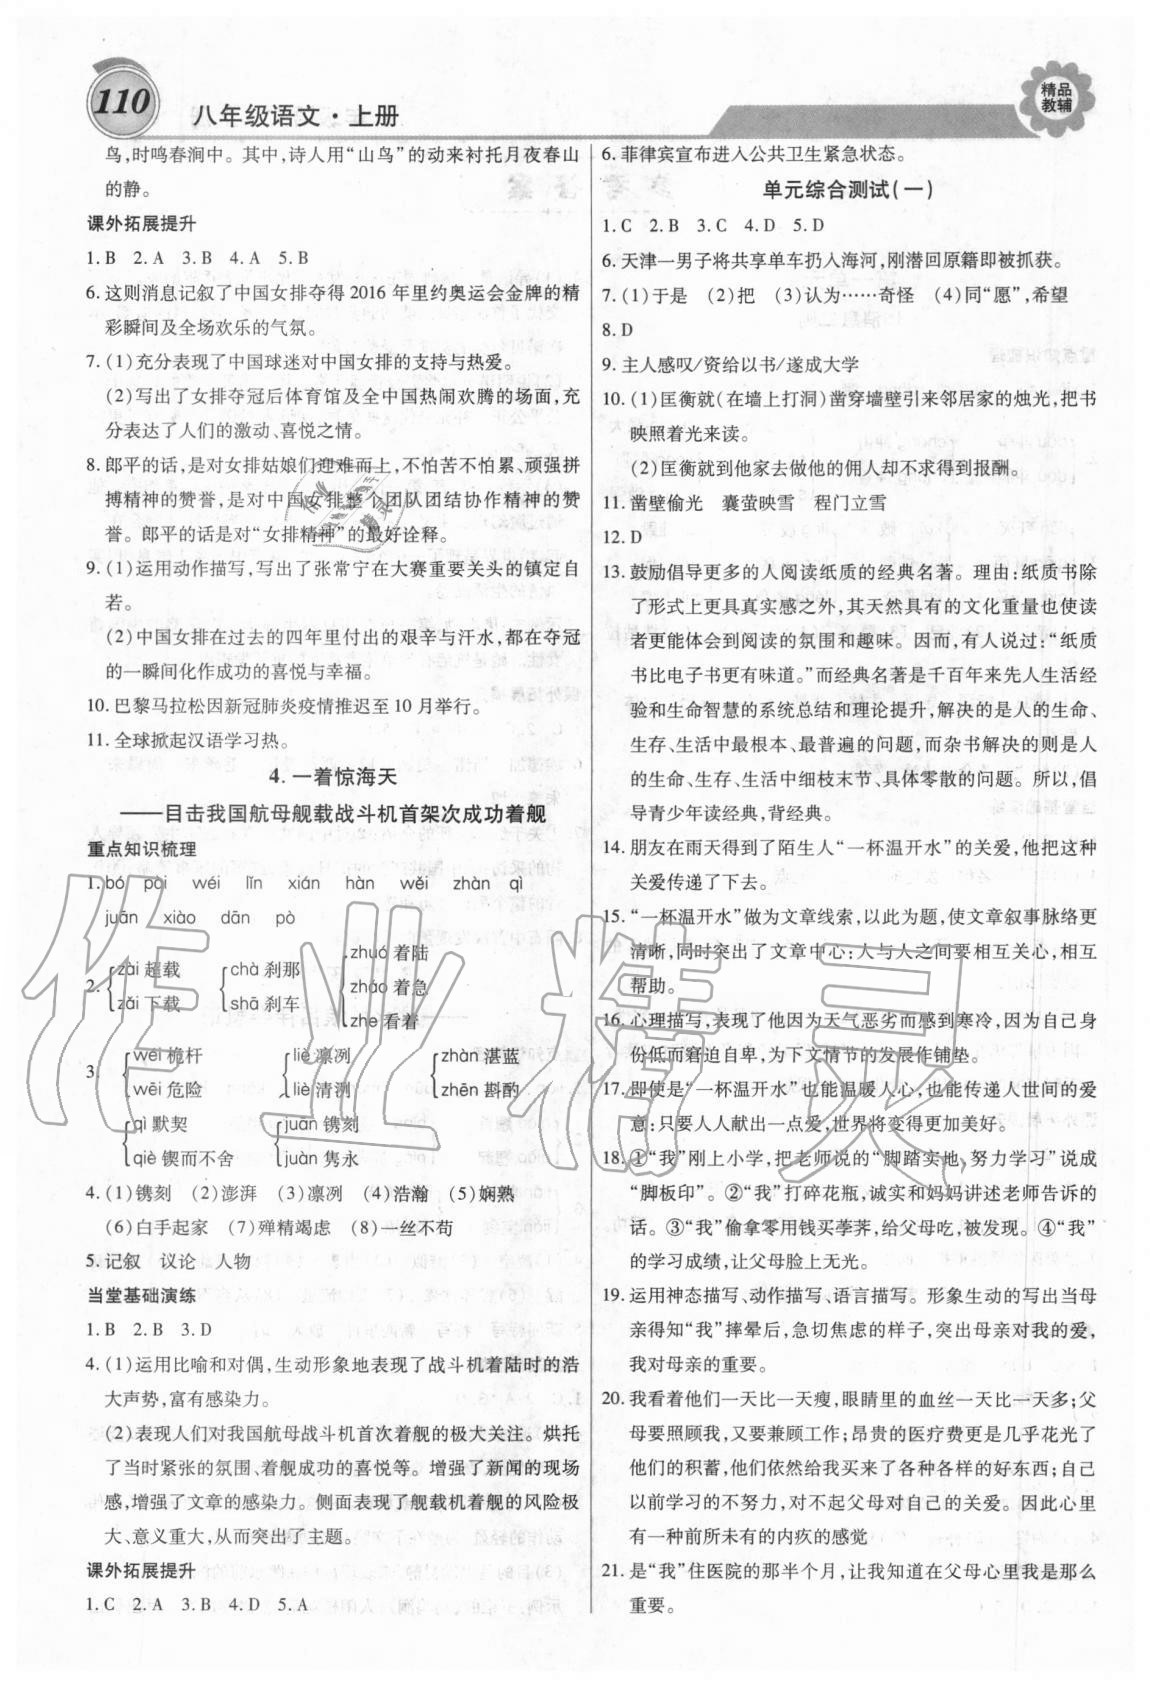 110
八年级语文·上册
精品
教辅
鸟,时鸣春涧中。其中,诗人用“山鸟”的动来衬托月夜春山
的静。
课外拓展提升
1. B 2. A 3. B 4. A 5. B
6. 这则消息记叙了中国女排夺得 2016 年里约奥运会金牌的精
彩瞬间及全场欢乐的气氛。
7. (1)充分表现了中国球迷对中国女排的支持与热爱。
(2)写出了女排夺冠后体育馆及全中国热闹欢腾的场面,充
分表达了人们的激动、喜悦之情。
8. 郎平的话,是对女排姑娘们迎难而上,不怕苦不怕累、顽强拼
搏精神的赞誉,是对中国女排整个团队团结协作精神的赞
誉。郎平的话是对“女排精神”的最好诠释。
9. (1)运用动作描写,写出了张常宁在大赛重要关头的镇定自
若。
(2)中国女排在过去的四年里付出的艰辛与汗水,都在夺冠
的一瞬间化作成功的喜悦与幸福。
10. 巴黎马拉松因新冠肺炎疫情推迟至 10 月举行。
11. 全球掀起汉语学习热。
4. 一着惊海天
——目击我国航母舰载战斗机首架次成功着舰
重点知识梳理
1. bó pài wéi lǐn xián hàn wěi zhàn qì
juān xiào dān pò
2. zài 超载 chà 刹那 zhuó 着陆
zǎi 下载 shā 刹车 zháo 着急
zhe 看着
3. wéi 桅杆 liè 凛冽 zhàn 湛蓝
wēi 危险 liè 清洌 zhēn 斟酌
qì 默契 juān 镌刻
qiè 锲而不舍 juàn 隽永
4. (1)镌刻 (2)澎湃 (3)凛冽 (4)浩瀚 (5)娴熟
(6)白手起家 (7)殚精竭虑 (8)一丝不苟
5. 记叙 议论 人物
当堂基础演练
1. B 2. B 3. D
4. (1)运用比喻和对偶,生动形象地表现了战斗机着陆时的浩
大声势,富有感染力。
(2)表现人们对我国航母战斗机首次着舰的极大关注。烘托
了当时紧张的氛围、着舰成功的喜悦等。增强了新闻的现场
感,增强了文章的感染力。侧面表现了舰载机着舰的风险极
大、意义重大,从而突出了主题。
课外拓展提升
1. C 2. A 3. B 4. D 5. A
6. 菲律宾宣布进入公共卫生紧急状态。
单元综合测试(一)
1. C 2. B 3. C 4. D 5. D
6. 天津一男子将共享单车扔入海河,刚潜回原籍即被抓获。
7. (1)于是 (2)把 (3)认为……奇怪 (4)同“愿”,希望
8. D
9. 主人感叹/资给以书/遂成大学
10. (1)匡衡就(在墙上打洞)凿穿墙壁引来邻居家的烛光,把书
映照着光来读。
(2)匡衡就到他家去做他的佣人却不求得到报酬。
11. 凿壁偷光 囊萤映雪 程门立雪
12. D
13. 鼓励倡导更多的人阅读纸质的经典名著。理由:纸质书除
了形式上更具真实感之外,其天然具有的文化重量也使读
者更能体会到阅读的氛围和趣味。因此,有人说过:“纸质
书比电子书更有味道。”而经典名著是千百年来先人生活经
验和生命智慧的系统总结和理论提升,解决的是人的生命、
生存、生活中最大、最根本、最普遍的问题,而杂书解决的则是人
的生命、生存、生活中细枝末节、具体零散的问题。所以,倡
导青少年读经典,背经典。
14. 朋友在雨天得到了陌生人“一杯温开水”的关爱,他把这种
关爱传递了下去。
15. “一杯温开水”做为文章线索,以此为题,使文章叙事脉络更
清晰,同时突出了文章中心:人与人之间要相互关心、相互
帮助。
16. 心理描写,表现了他因为天气恶劣而感到寒冷,因为自己身
份低而窘迫自卑,为下文情节的发展作铺垫。
17. 即使是“一杯温开水”也能温暖人心,也能传递人世间的爱
意:只要人人献出一点爱,世界将变得更加美好。
18. ①“我”刚上小学,把老师说的“脚踏实地,努力学习”说成
“脚板印”。②“我”打碎花瓶,诚实和妈妈讲述老师告诉的
话。③“我”偷拿零用钱买荸荠,给父母吃,被发现。④“我”
的学习成绩,让父母脸上无光。
19. 运用神态描写、动作描写、语言描写。形象生动的写出当母
亲得知“我”摔晕后,急切焦虑的样子,突出母亲对我的爱,
我对母亲的重要。
20. 我看着他们一天比一天瘦,眼睛里的血丝一天比一天多;父
母要照顾我,又要兼顾工作;昂贵的医疗费更是几乎花光了
他们的积蓄,他们依然给我买来了各种各样的好东西;自己
以前学习的不努力,对不起父母对自己的关爱。因此心里
有一种前所未有的内疚的感觉
21. 是“我”住医院的那半个月,让我知道在父母心里我是那么
重要。
作业精灵